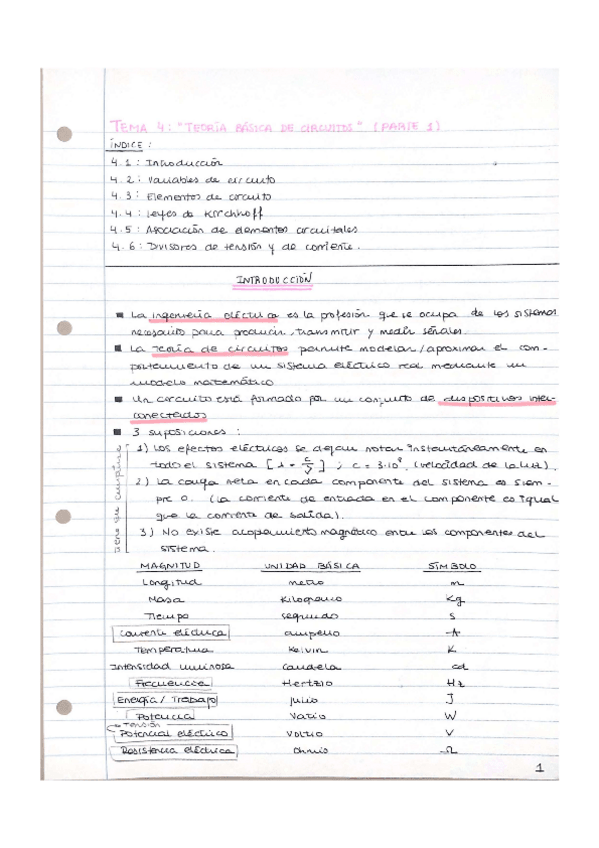 TEMA 4: "TEORÍA BÁSICA DE CIRCUITOS" (PARTE 1)
ÍNDICE:
4.1: Introducción
4.2: Variables de circuito
4.3: Elementos de circuito
4.4: Leyes de Kirchhoff
4.5: Asociación de elementos circuitales
4.6: Divisores de tensión y de corriente.
INTRODUCCIÓN
■ La ingeniería eléctrica es la profesión que se ocupa de los sistemas
necesarios para producir, transmitir y medir señales.
■ La teoría de circuitos permite modelar/aproximar el com-
portamiento de un sistema eléctrico real mediante un
modelo matemático
■ Un circuito está formado por un conjunto de dispositivos inter-
conectados
■ 3 suposiciones:
1) Los efectos eléctricos se dejan notar instantáneamente en
todo el sistema [λ = c/ν]; c = 3·10⁸ (velocidad de la luz).
2) La carga neta en cada componente del sistema es siem-
pre 0. (la corriente de entrada en el componente es igual
que la corriente de salida).
3) No existe acoplamiento magnético entre los componentes del
sistema.
tiene que cumplirse
MAGNITUD UNIDAD BÁSICA SÍMBOLO
Longitud metro m
Masa Kilogramo Kg
Tiempo segundo s
Corriente eléctrica amperio A
Temperatura Kelvin K
Intensidad luminosa candela cd
Frecuencia Hertzio Hz
Energía/Trabajo julio J
Potencia Vatio W
→ TENSIÓN
Potencial eléctrico Voltio V
Resistencia eléctrica Ohmio Ω
1